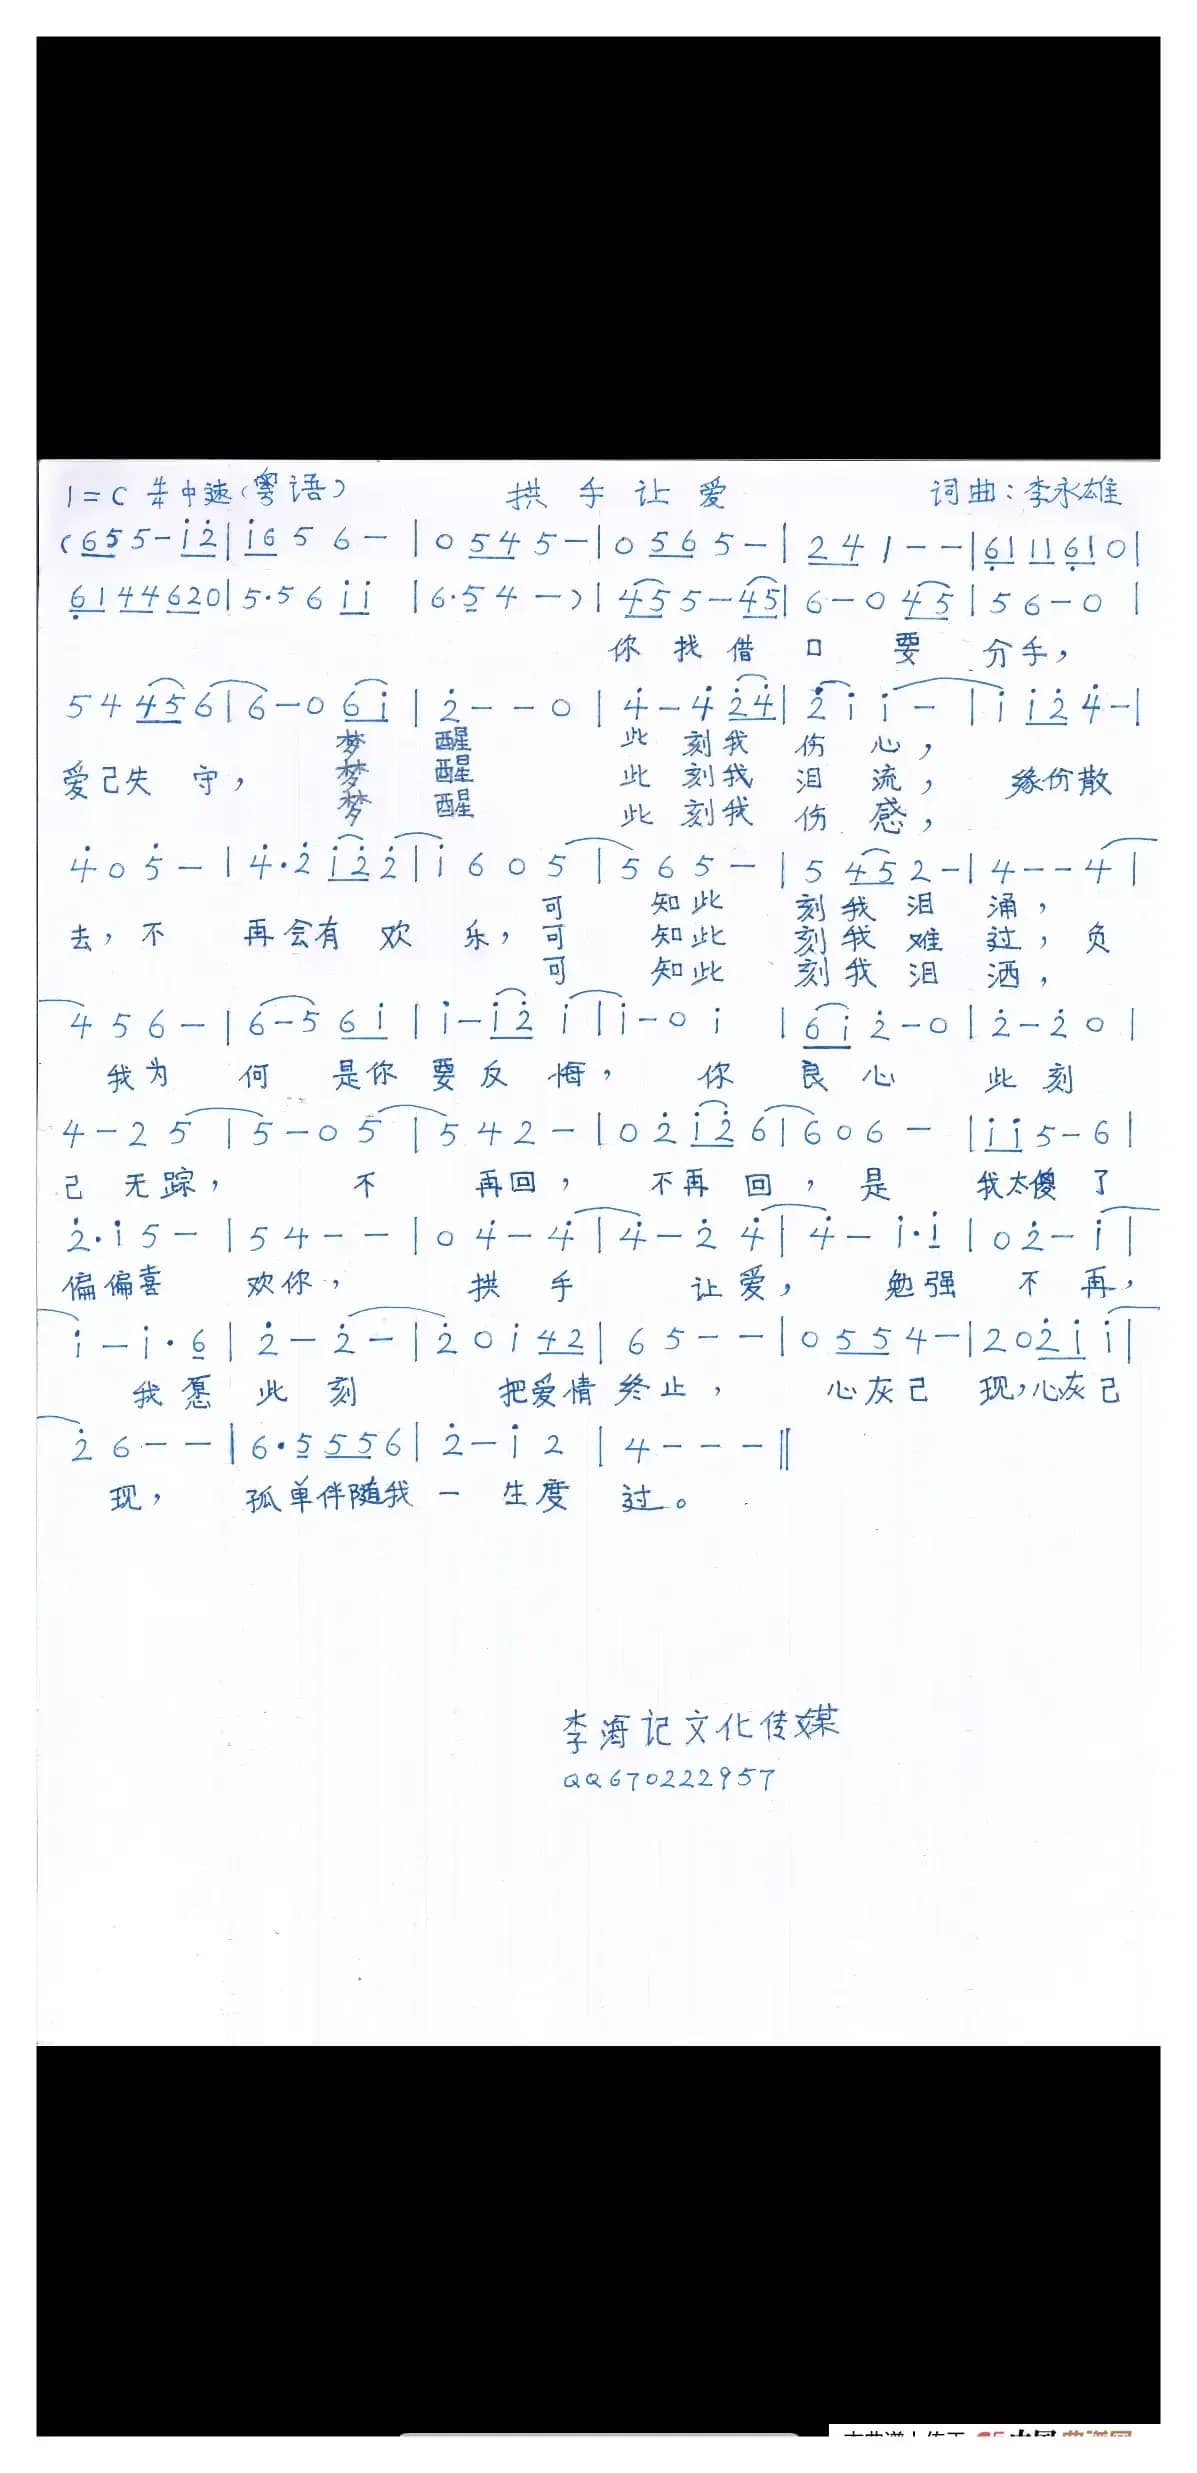 1=C 4/4 中速(粤语) 拱手让爱 词曲:李永雄
(6 5 5 5 - i̇ 2̇ | i̇ 6 5 6 - | 0 5 4 5 - | 0 5 6 5 - | 2 4 1 - - | 6̣ 1 1 1 6̣ 1 0 |
6̣ 1 4 4 6 2 0 | 5·5 6 i̇ i̇ | 6·5 4 -) | 4 5 5 - 4 5 | 6 - 0 4 5 | 5 6 - 0 |
你找借口要分手,
5 4 4 5 6 | 6 - 0 6 i̇ | 2̇ - - 0 | 4̇ - 4̇ 2̇ 4̇ | 2̇ i̇ i̇ - | i̇ i̇ 2̇ 4̇ - |
梦醒 此刻我伤心,
爱己失守, 梦醒 此刻我泪流, 缘份散
梦醒 此刻我伤感,
4̇ 0 5̇ - | 4̇·2̇ i̇ 2̇ 2̇ | i̇ 6 0 5 | 5 6 5 - | 5 4 5 2 - | 4 - - 4 |
可知此刻我泪涌,
去,不再会有欢乐,可知此刻我难过,负
可知此刻我泪洒,
4 5 6 - | 6 - 5 6 i̇ | i̇ - i̇ 2̇ i̇ | i̇ - 0 i̇ | 6 i̇ 2̇ - 0 | 2̇ - 2̇ 0 |
我为何是你要反悔,你良心此刻
4 - 2 5 | 5 - 0 5 | 5 4 2 - | 0 2̇ i̇ 2̇ 6 | 6 0 6 - | i̇ i̇ 5 - 6 |
己无踪,不再回,不再回,是我太傻了
2̇·i̇ 5 - | 5 4 - - | 0 4̇ - 4̇ | 4̇ - 2̇ 4̇ | 4̇ - i̇·i̇ | 0 2̇ - i̇ |
偏偏喜欢你,拱手让爱,勉强不再,
i̇ - i̇·6 | 2̇ - 2̇ - | 2̇ 0 i̇ 4 2 | 6 5 - - | 0 5 5 4 - | 2 0 2̇ i̇ i̇ |
我愿此刻把爱情终止,心灰己现,心灰己
2̇ 6 - - | 6·5 5 5 6 | 2̇ - i̇ 2 | 4 - - - ‖
现,孤单伴随我一生度过。
李海记文化传媒
QQ670222957